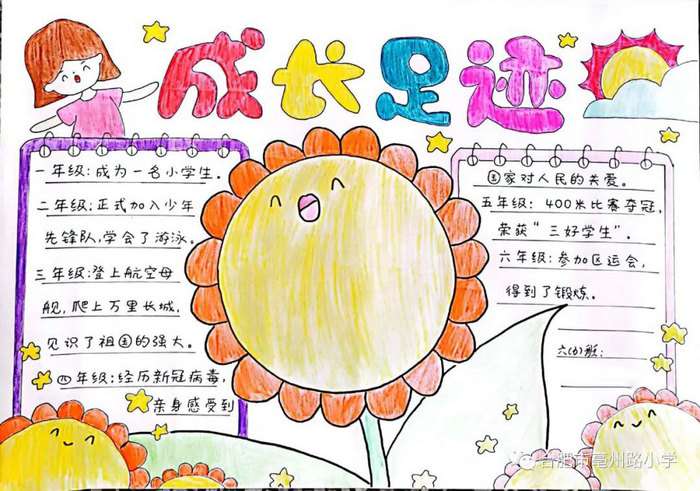 成长足迹
一年级:成为一名小学生。
二年级:正式加入少年
先锋队,学会了游泳。
三年级:登上航空母
舰,爬上万里长城,
见识了祖国的强大。
四年级:经历新冠病毒,
亲身感受到
国家对人民的关爱。
五年级: 400米比赛夺冠,
荣获“三好学生”.
六年级:参加区运会,
得到了锻炼。
六(6)班:
合肥市亳州路小学